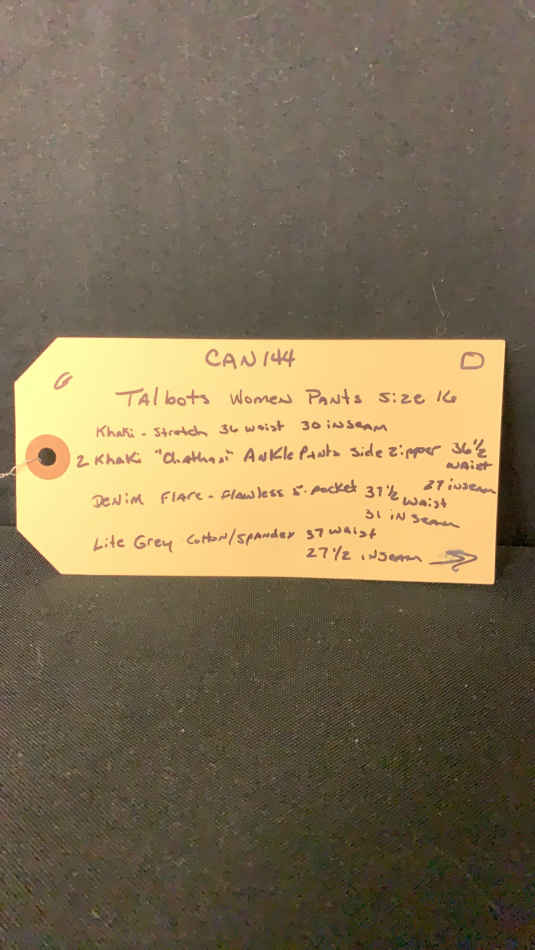 CAN 144
D
G
Talbots Women Pants Size 16
Khaki - Stretch 36 waist 30 inseam
2 Khaki "Chatham" Ankle Pants Side Zipper 36 1/2 waist
29 inseam
Denim Flare - Flawless 5-pocket 37 1/2 waist
31 inseam
Lite Grey Cotton/Spandex 37 waist
27 1/2 inseam →